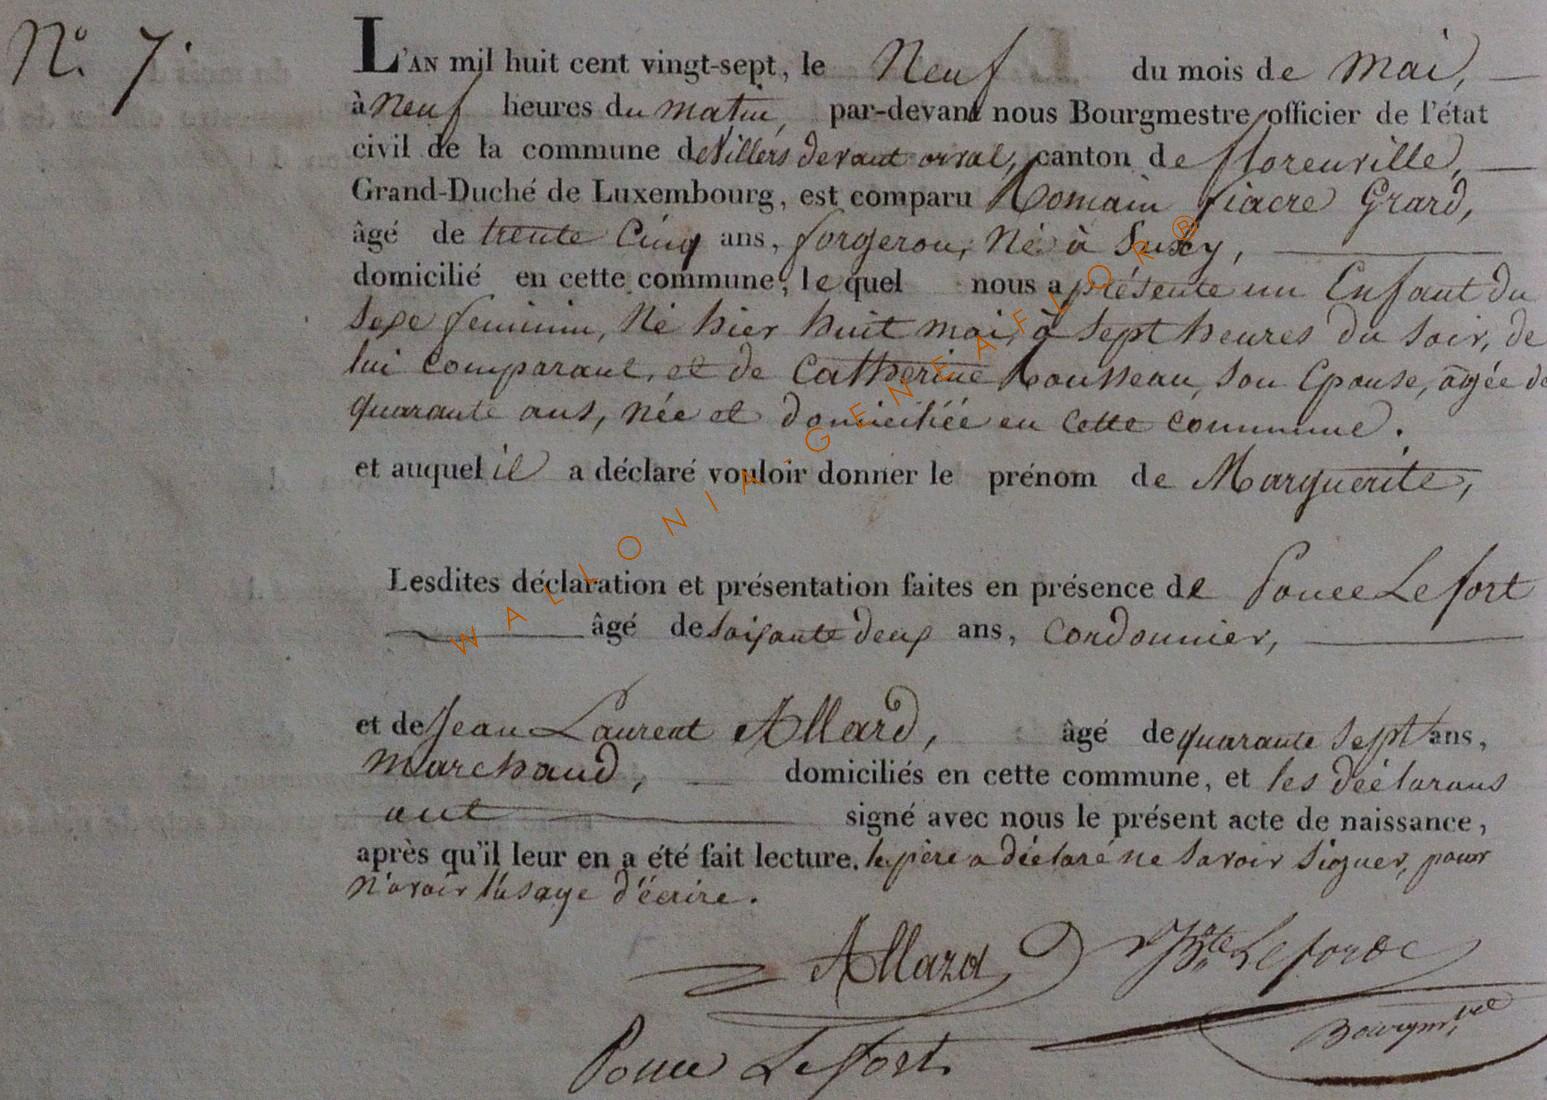 N.° 7.
L'AN mil huit cent vingt-sept, le Neuf du mois de Mai,
à Neuf heures du matin, par-devant nous Bourgmestre officier de l'état
civil de la commune de Villers devant orval, canton de florenville,
Grand-Duché de Luxembourg, est comparu Romain fiacre Grard,
âgé de trente Cinq ans, forgeron, Né à Suxy,
domicilié en cette commune, le quel nous a présenté un Enfant du
Sexe feminin, Né hier huit mai, à Sept heures du Soir, de
lui comparant, et de Catherine Rousseau, Son Epouse, agée de
quarante ans, née et domiciliée en cette commune.
et auquel il a déclaré vouloir donner le prénom de Marguerite,
Lesdites déclaration et présentation faites en présence de Ponce Lefort
âgé de Soixante deux ans, Cordonnier,
et de Jean Laurent Allard, âgé de quarante Sept ans,
Marchand, domiciliés en cette commune, et les déclarans
ont signé avec nous le présent acte de naissance,
après qu'il leur en a été fait lecture. le père a déclaré ne Savoir Signer, pour
n'avoir l'usage d'écrire.
Allard JBte Lefort
Ponce Lefort
WALLONIA-GENEAFLOR®